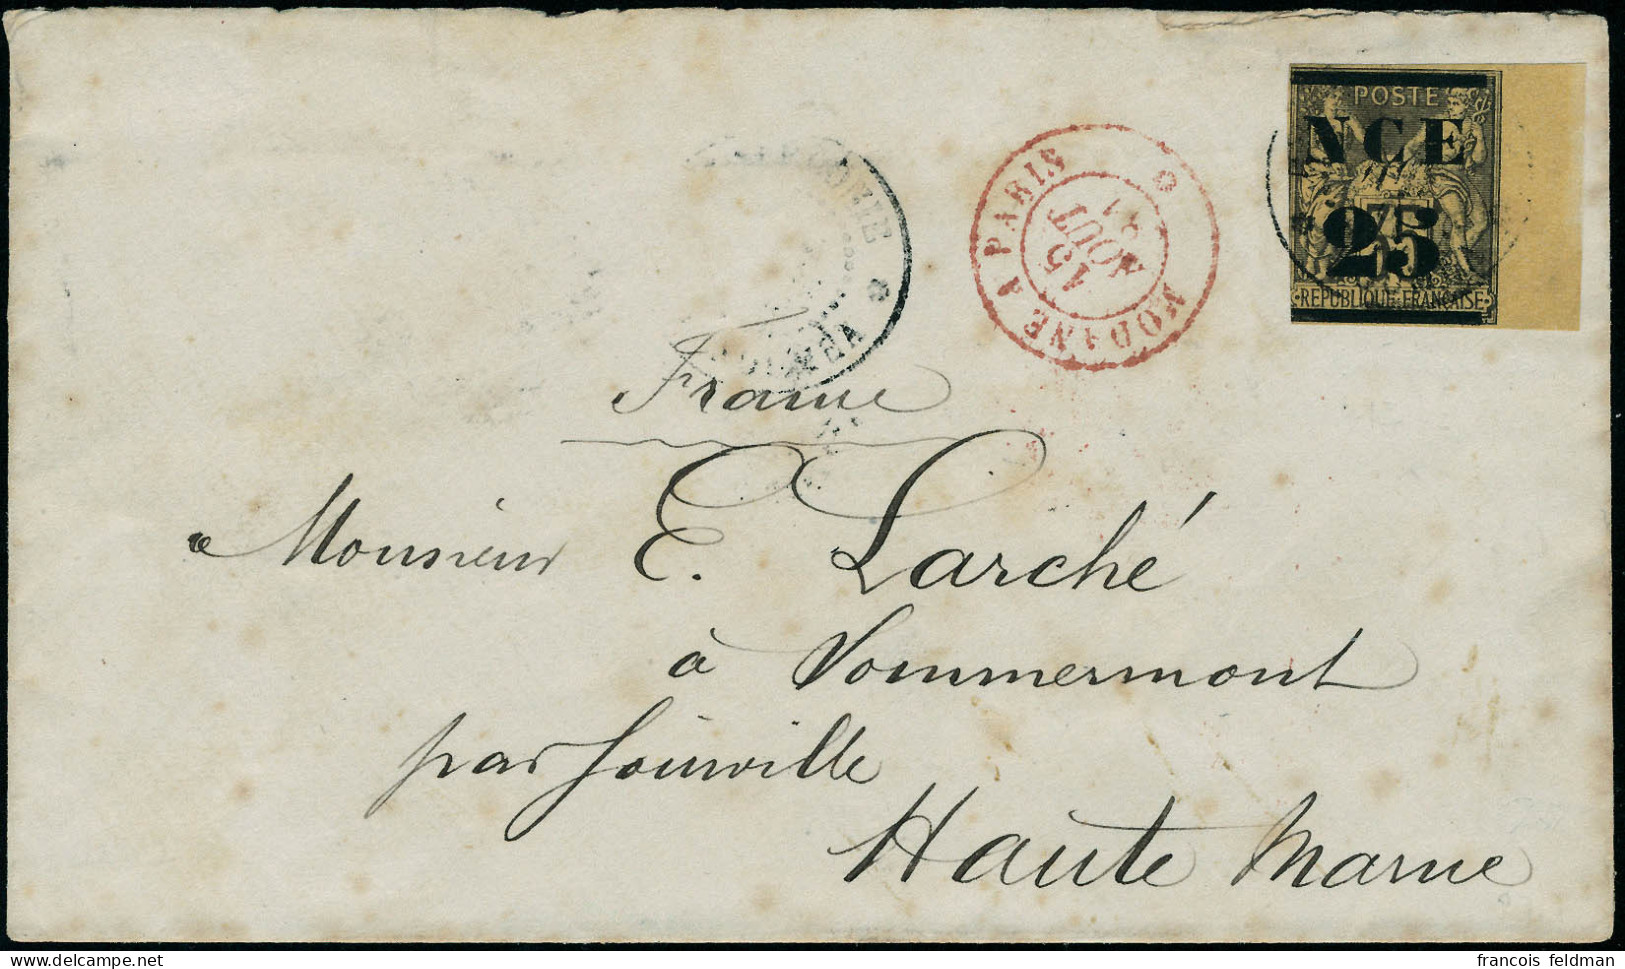 POSTE
NCE
25
REPUBLIQUE FRANÇAISE
MODANE A PARIS
15
AOUT
81
France
Monsieur E. Larché
à Sommermont
par Joinville
Haute Marne
francois feldman